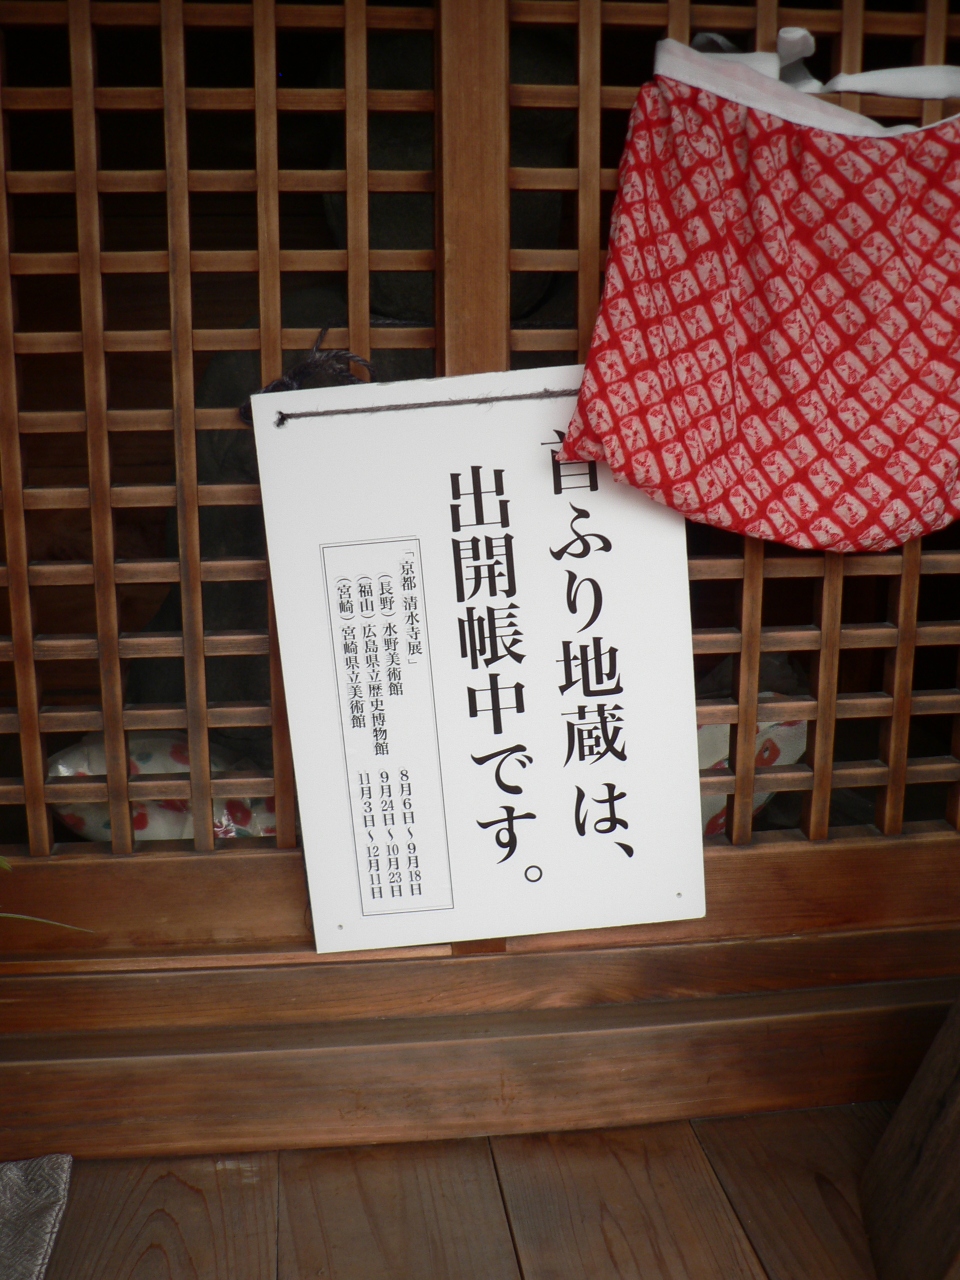 首ふり地蔵は、
出開帳中です。
「京都 清水寺展」
(長野)水野美術館 8月6日~9月18日
(福山)広島県立歴史博物館 9月24日~10月23日
(宮崎)宮崎県立美術館 11月3日~12月11日